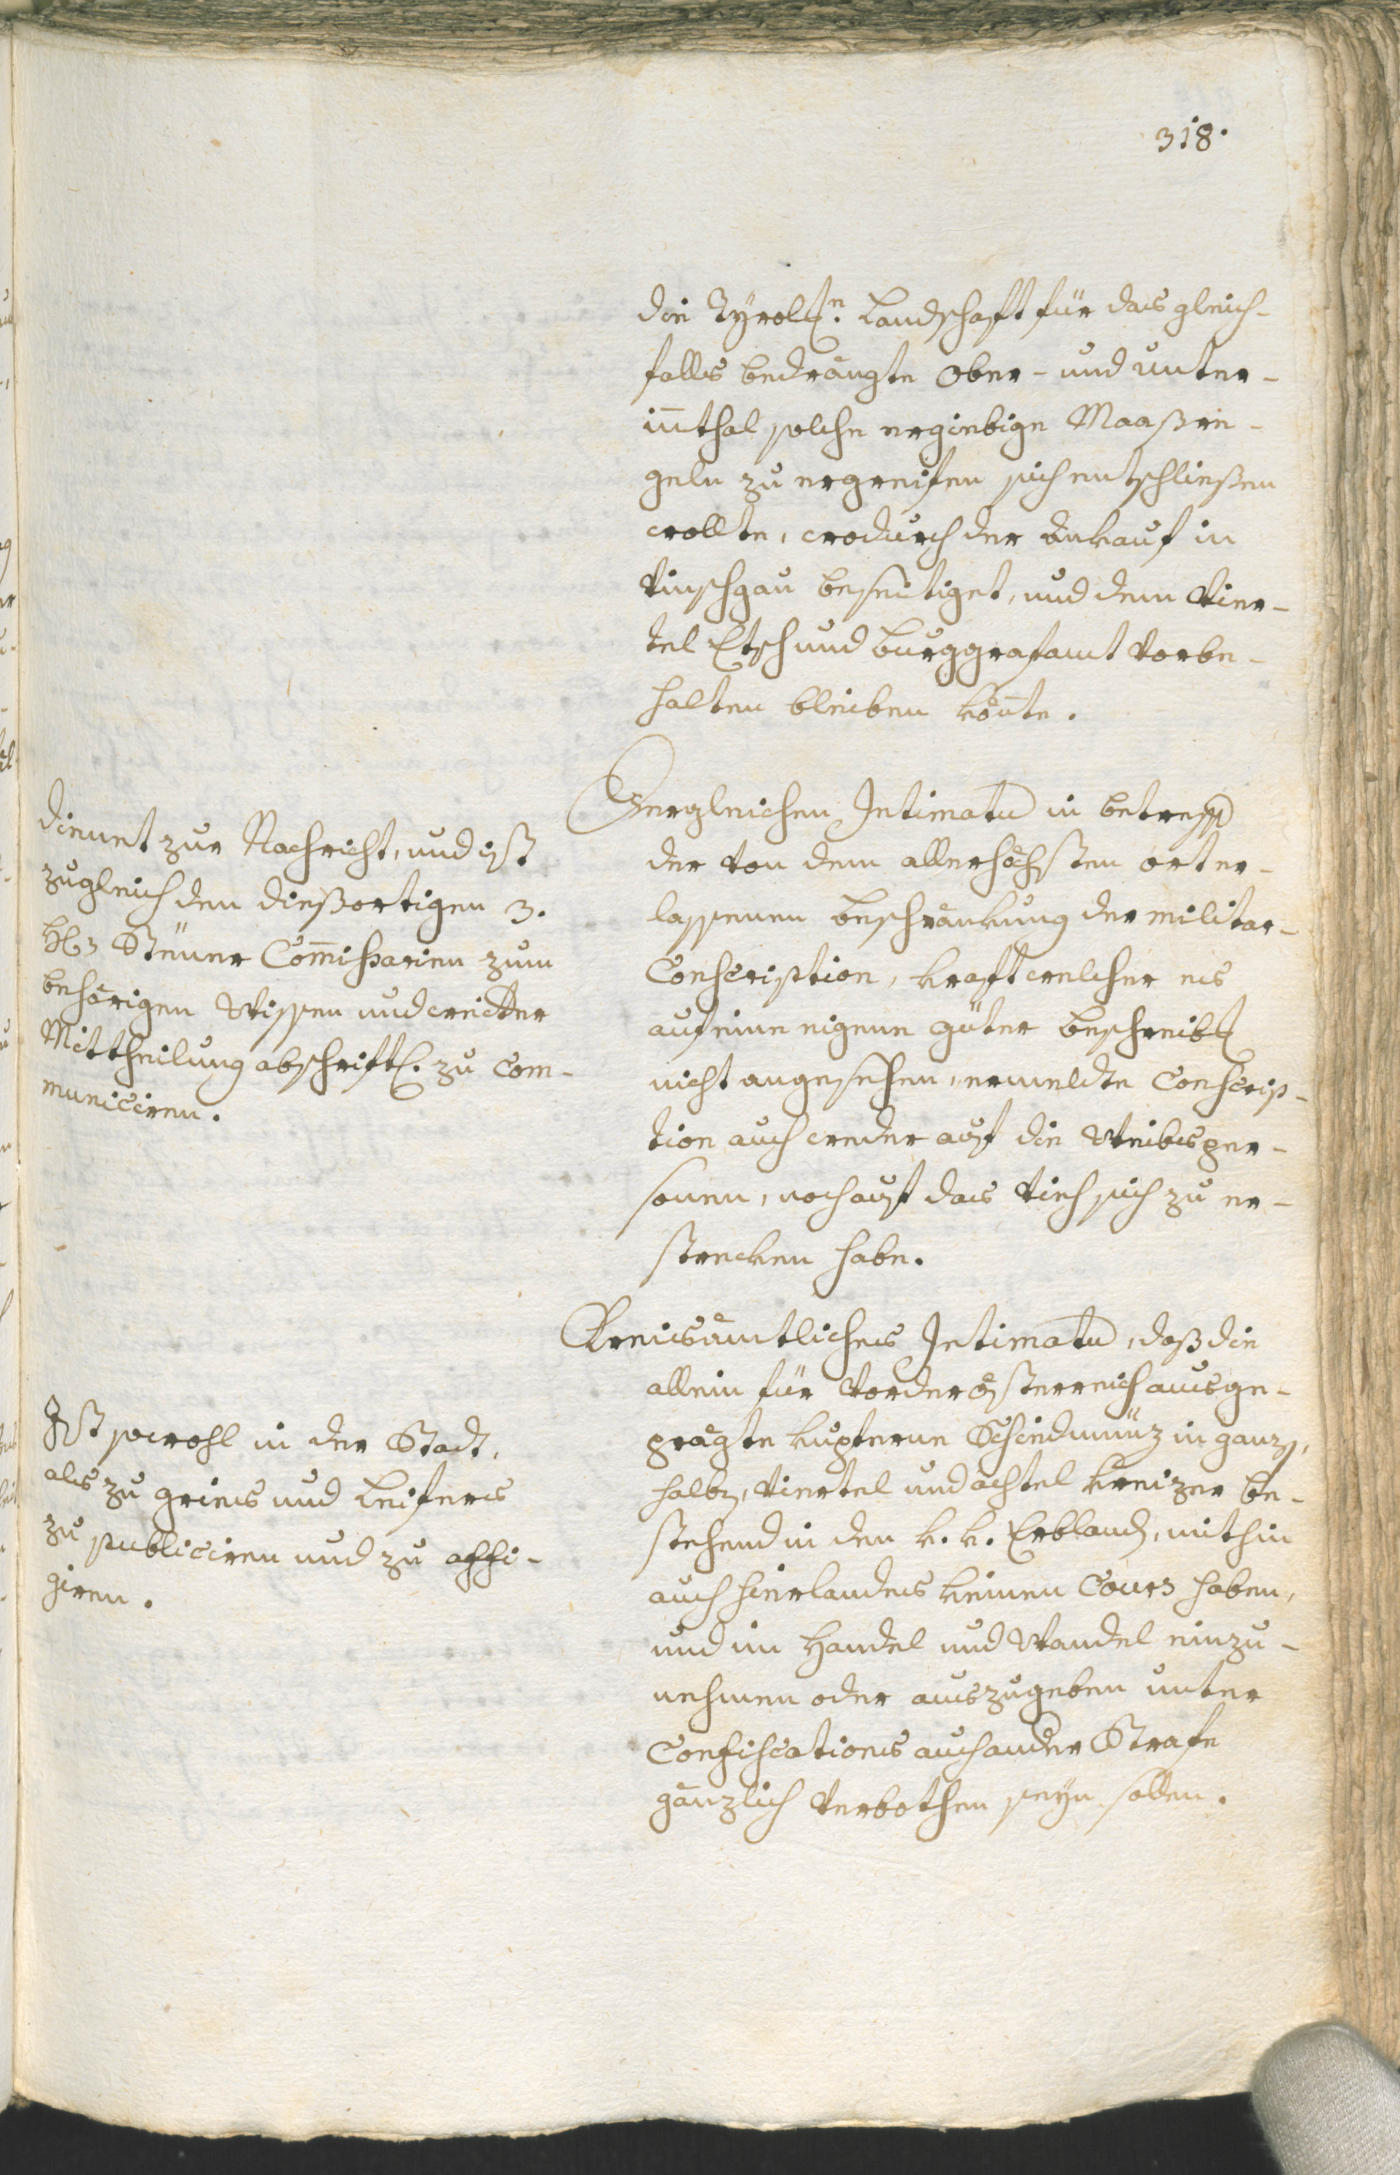 318.
die Tÿrol[n]. Landschaft für das gleich-
falls bedrängte Ober- und Unter-
iñthal solche ergiebige Maaßre-
geln zu ergreifen sich entschließen
wollte, wodurch der Ankauf in
Vinschgau beseitiget, und dem Vier-
tel Etsch und Burggrafamt vorbe-
halten bleiben köñte.
Dergleichen Intimatu in betreff
der von dem allerhöchsten orter-
lassenen Beschränkung der militar-
Conscription, kraft welcher es
auf eine eigene güter beschreibg
nicht angesehen, ermeldte Conscrip-
tion auch weder auf die Weibsper-
sonen, noch auf das Vieh sich zu er-
strecken habe.
Dienet zur Nachricht, und ist
zugleich den dießortigen 3.
HH. Steuer Com̃issarien zum
behörigen Wissen und weitter
Mittheilung abschriftl. zu com-
municiren.
Kreisämtliches Intimatu, daß die
allein für Vorderösterreich ausge-
prägte kupferne Scheidmünz in ganz,
halb, Viertel und achtel Kreizer be-
stehend in den k. k. Erbland, mithin
auch hierlandes keinen Cours haben,
und im Handel und Wandel einzu-
nehmen oder auszugeben unter
Confiscations auch ander Strafe
gänzlich verbothen seyn sollen.
Ist sowohl in der Stadt,
als zu gries und Leifers
zu publiciren und zu affi-
giren.